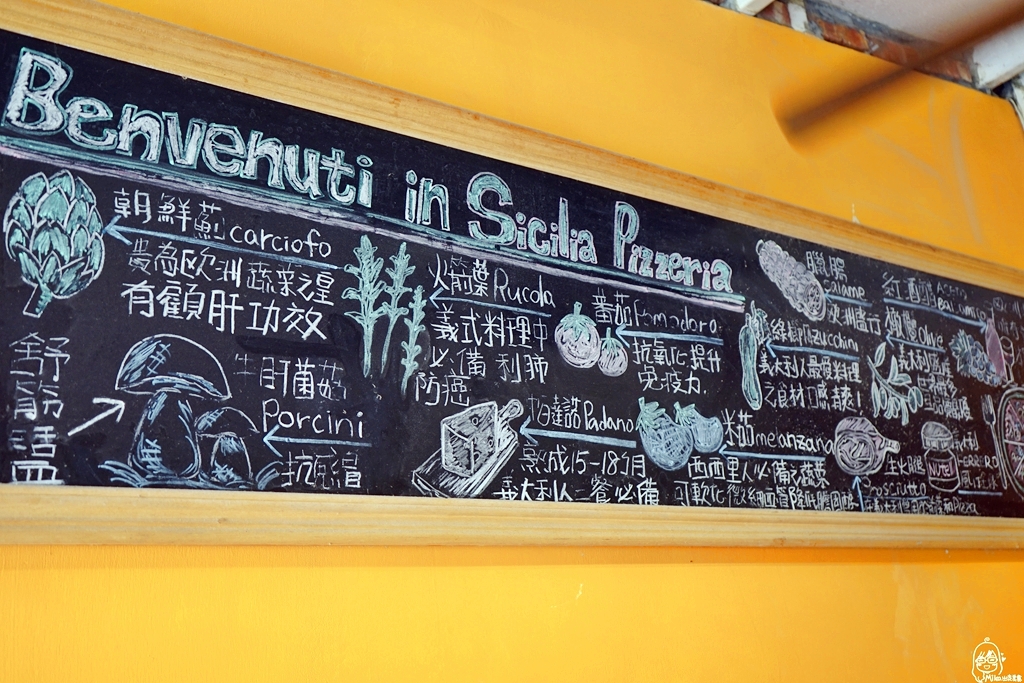 Benvenuti in Sicilia Pizzeria
朝鮮薊 carciofo
貴為歐洲蔬菜之皇
有顧肝功效
舒筋活血
牛肝菌菇
Porcini
抗感冒
火箭葉 Rucola
義式料理中
必備 利肺
防癌
番茄 Pomodoro
抗氧化 提升
免疫力
帕達諾 Padano
熟成15-18個月
義大利人三餐必備
綠櫛瓜 zucchini
義大利人最愛料理
之食材 口感清爽!
米茄 melanzano
西西里人必備之蔬菜
可軟化微細血管降低膽固醇
臘腸
Salame
紅酒醋 Aceto
Balsamico
橄欖 Olive
生火腿
Prosciutto
NUTELLA
FERRERO